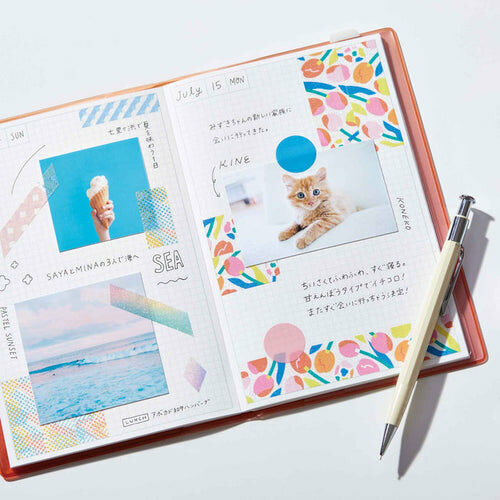 SUN
七里ヶ浜で夏を味わう1日
SAYAとMINAの3人で海へ
SEA
PASTEL SUNSET
LUNCH アボカドハンバーグ
July 15 MON
みずきちゃんの新しい家族に
会いに行ってきた。
KINE
KONEKO
ちいさくてふわふわ、すぐ寝る。
甘えんぼうタイプでイチコロ!
またすぐ会いに行っちゃう決定!